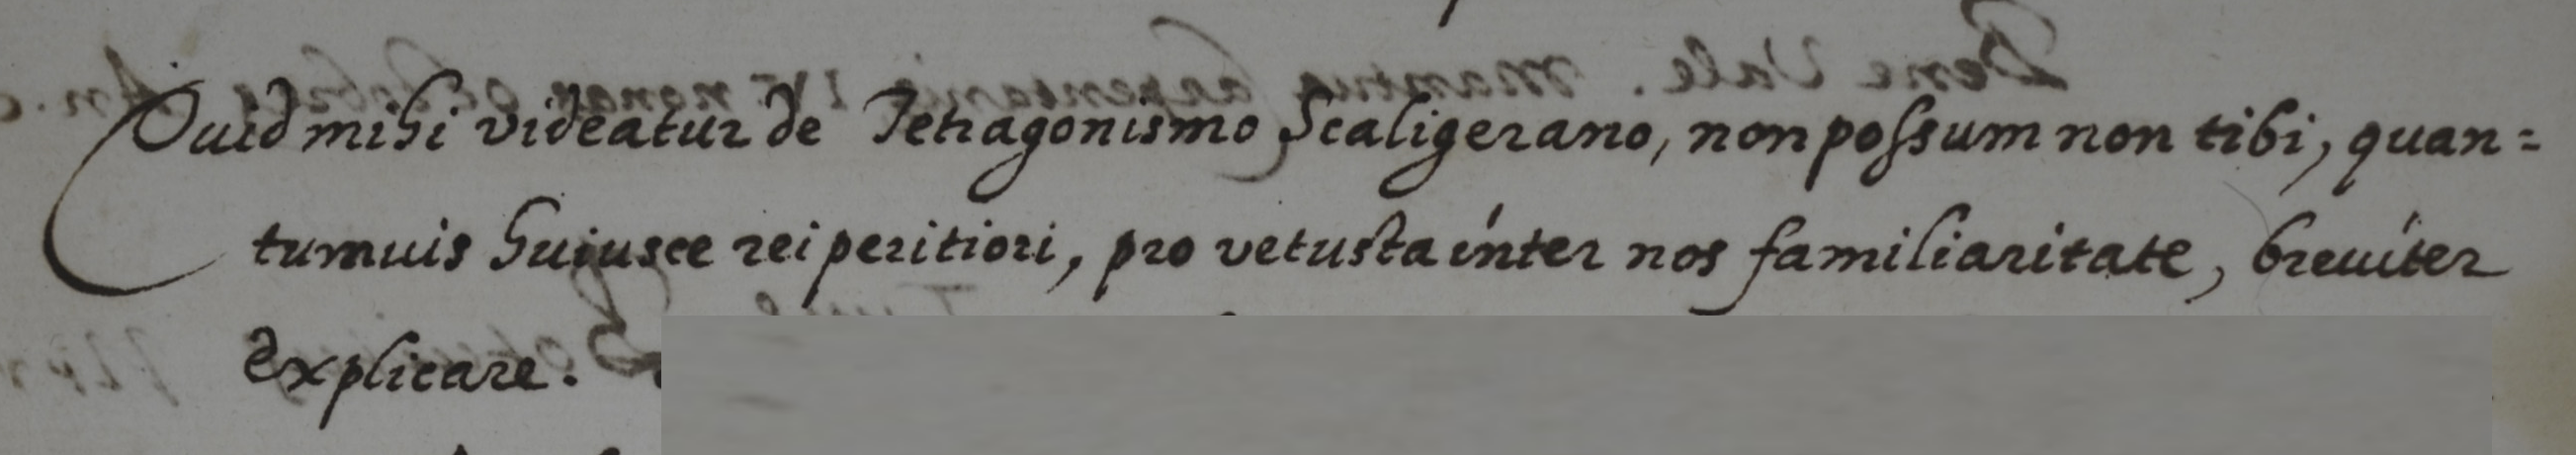 Quid mihi videatur de Tetragonismo Scaligerano, non possum non tibi, quan=
tumuis huiusce rei peritiori, pro vetusta inter nos familiaritate, breuiter
explicare.